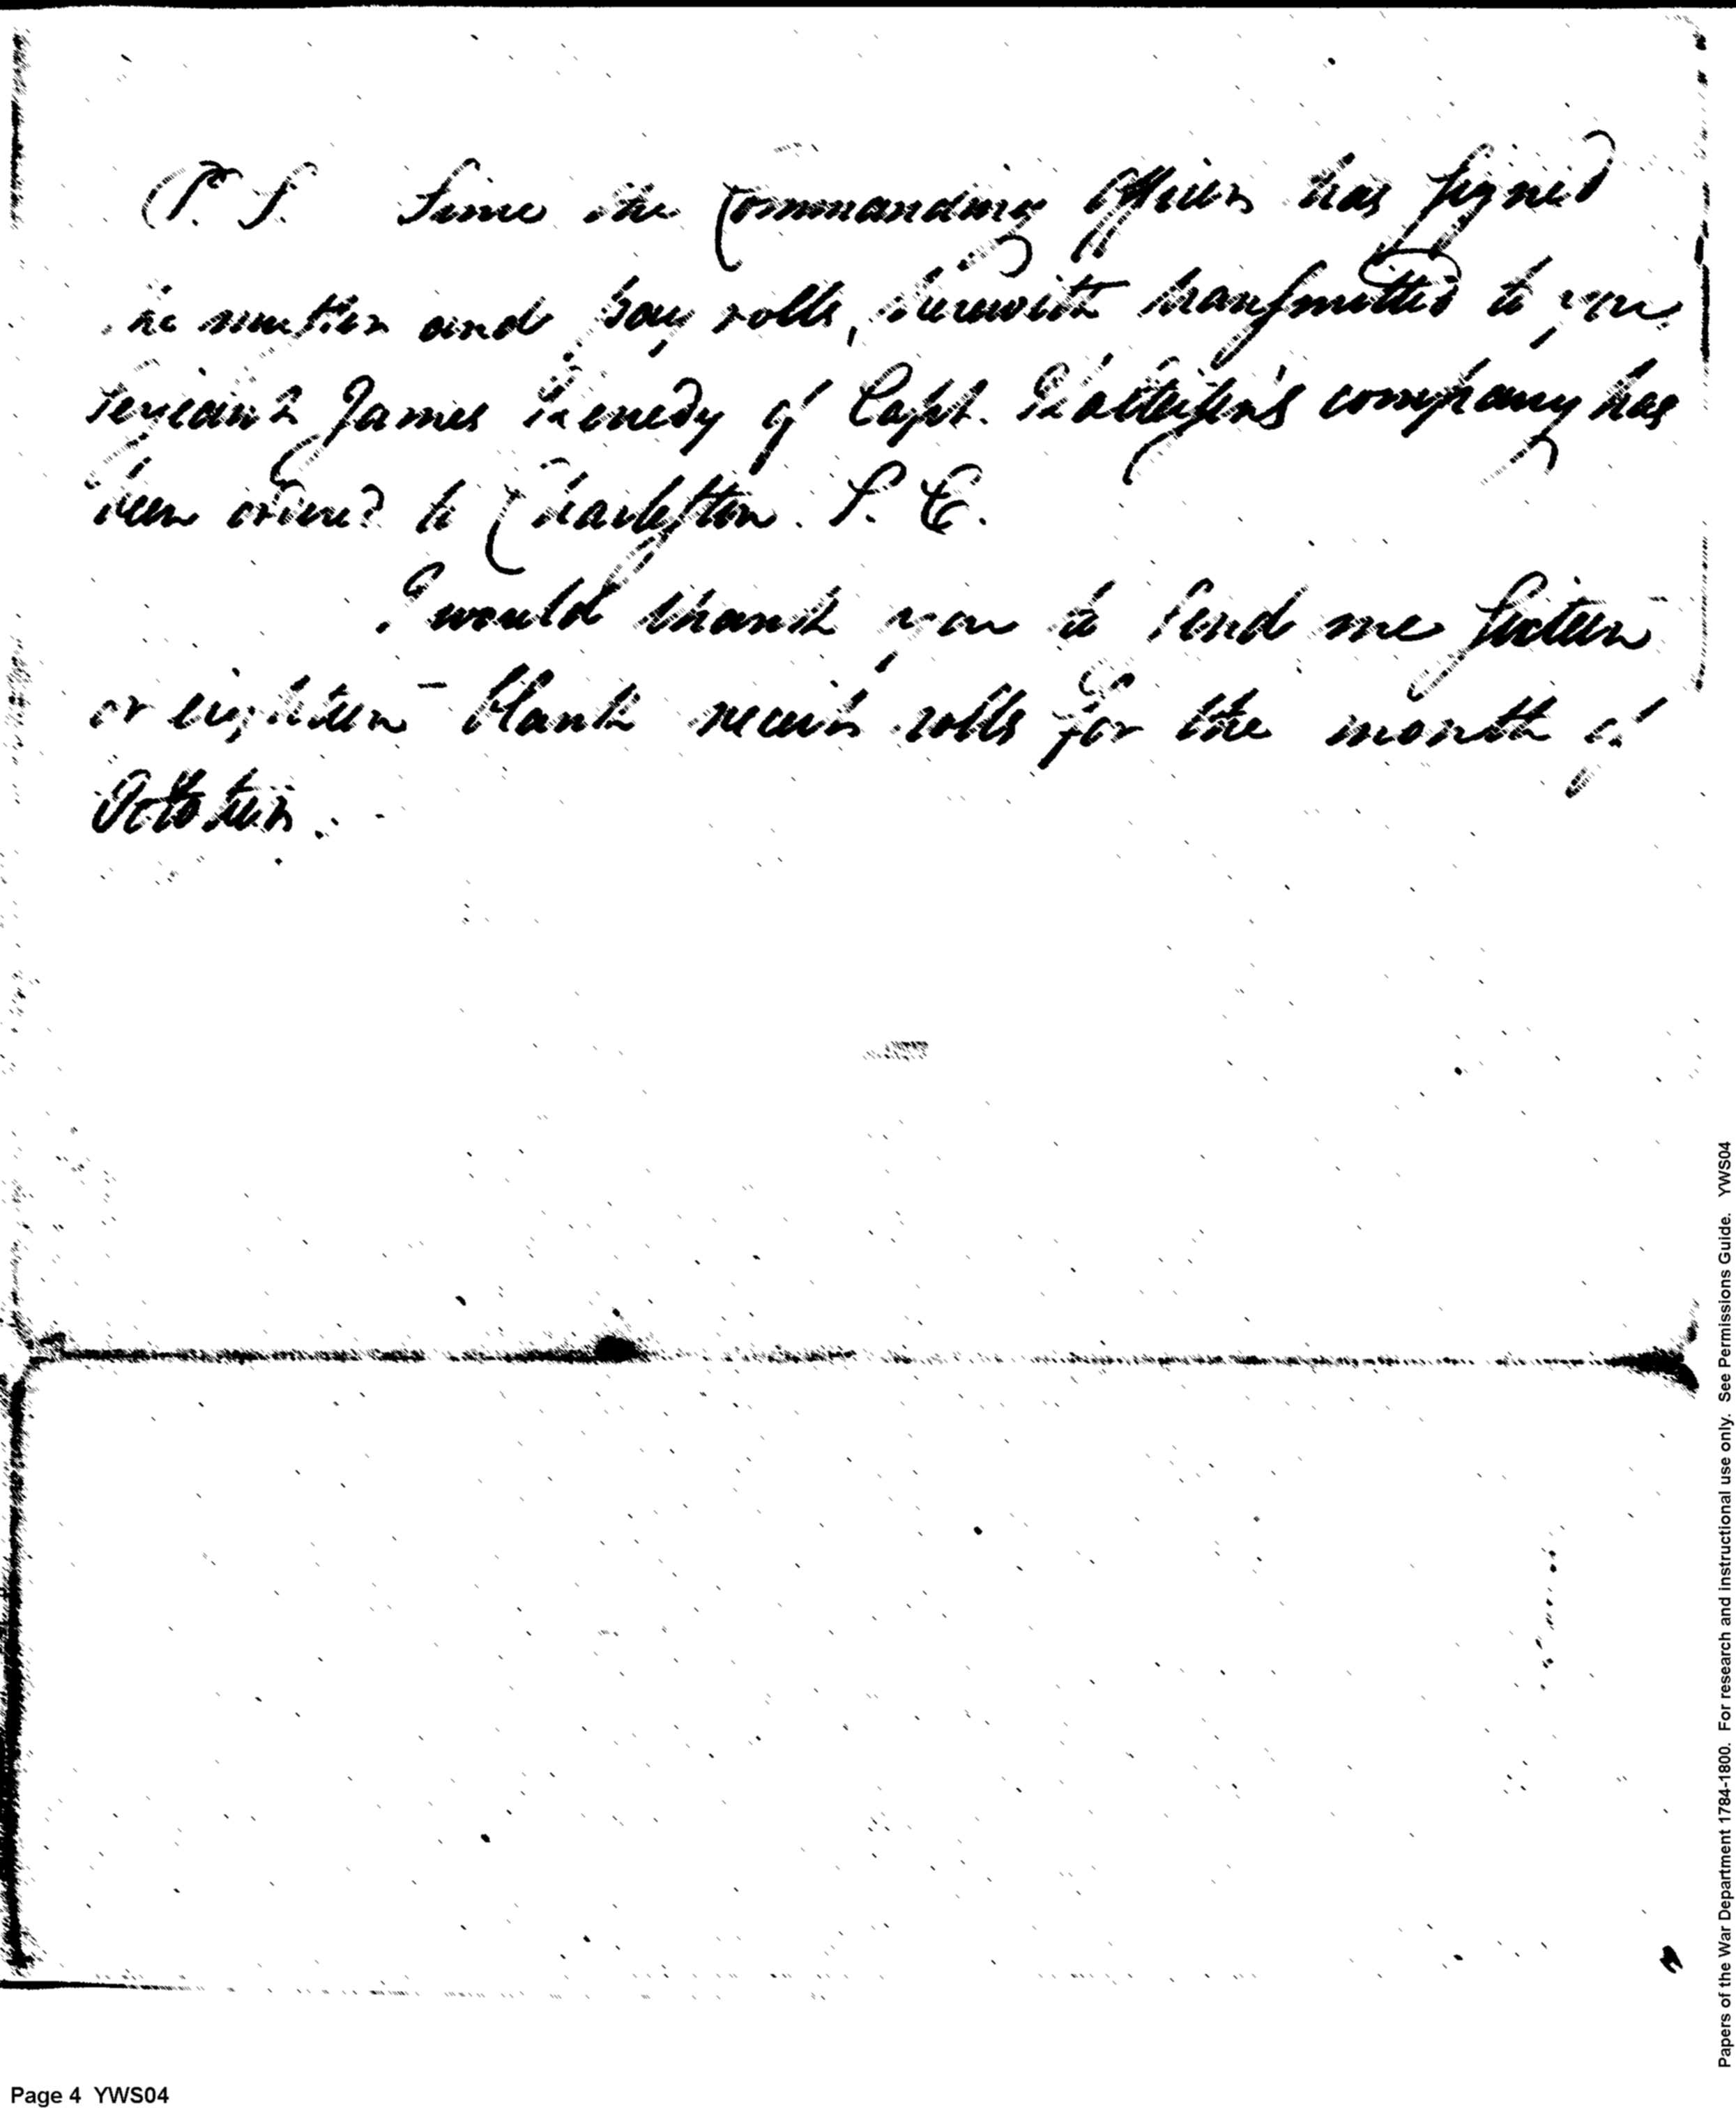 P. S. Since the Commanding Officer has signed
the muster and pay rolls, herewith transmitted to you
Serjeant James Kenedy of Capt. company has
been ordered to Charleston. S. C.
I would thank you to send me sixteen
or eighteen blank receipt rolls for the month of
October.
Page 4 YWS04
Papers of the War Department 1784-1800. For research and instructional use only. See Permissions Guide. YWS04